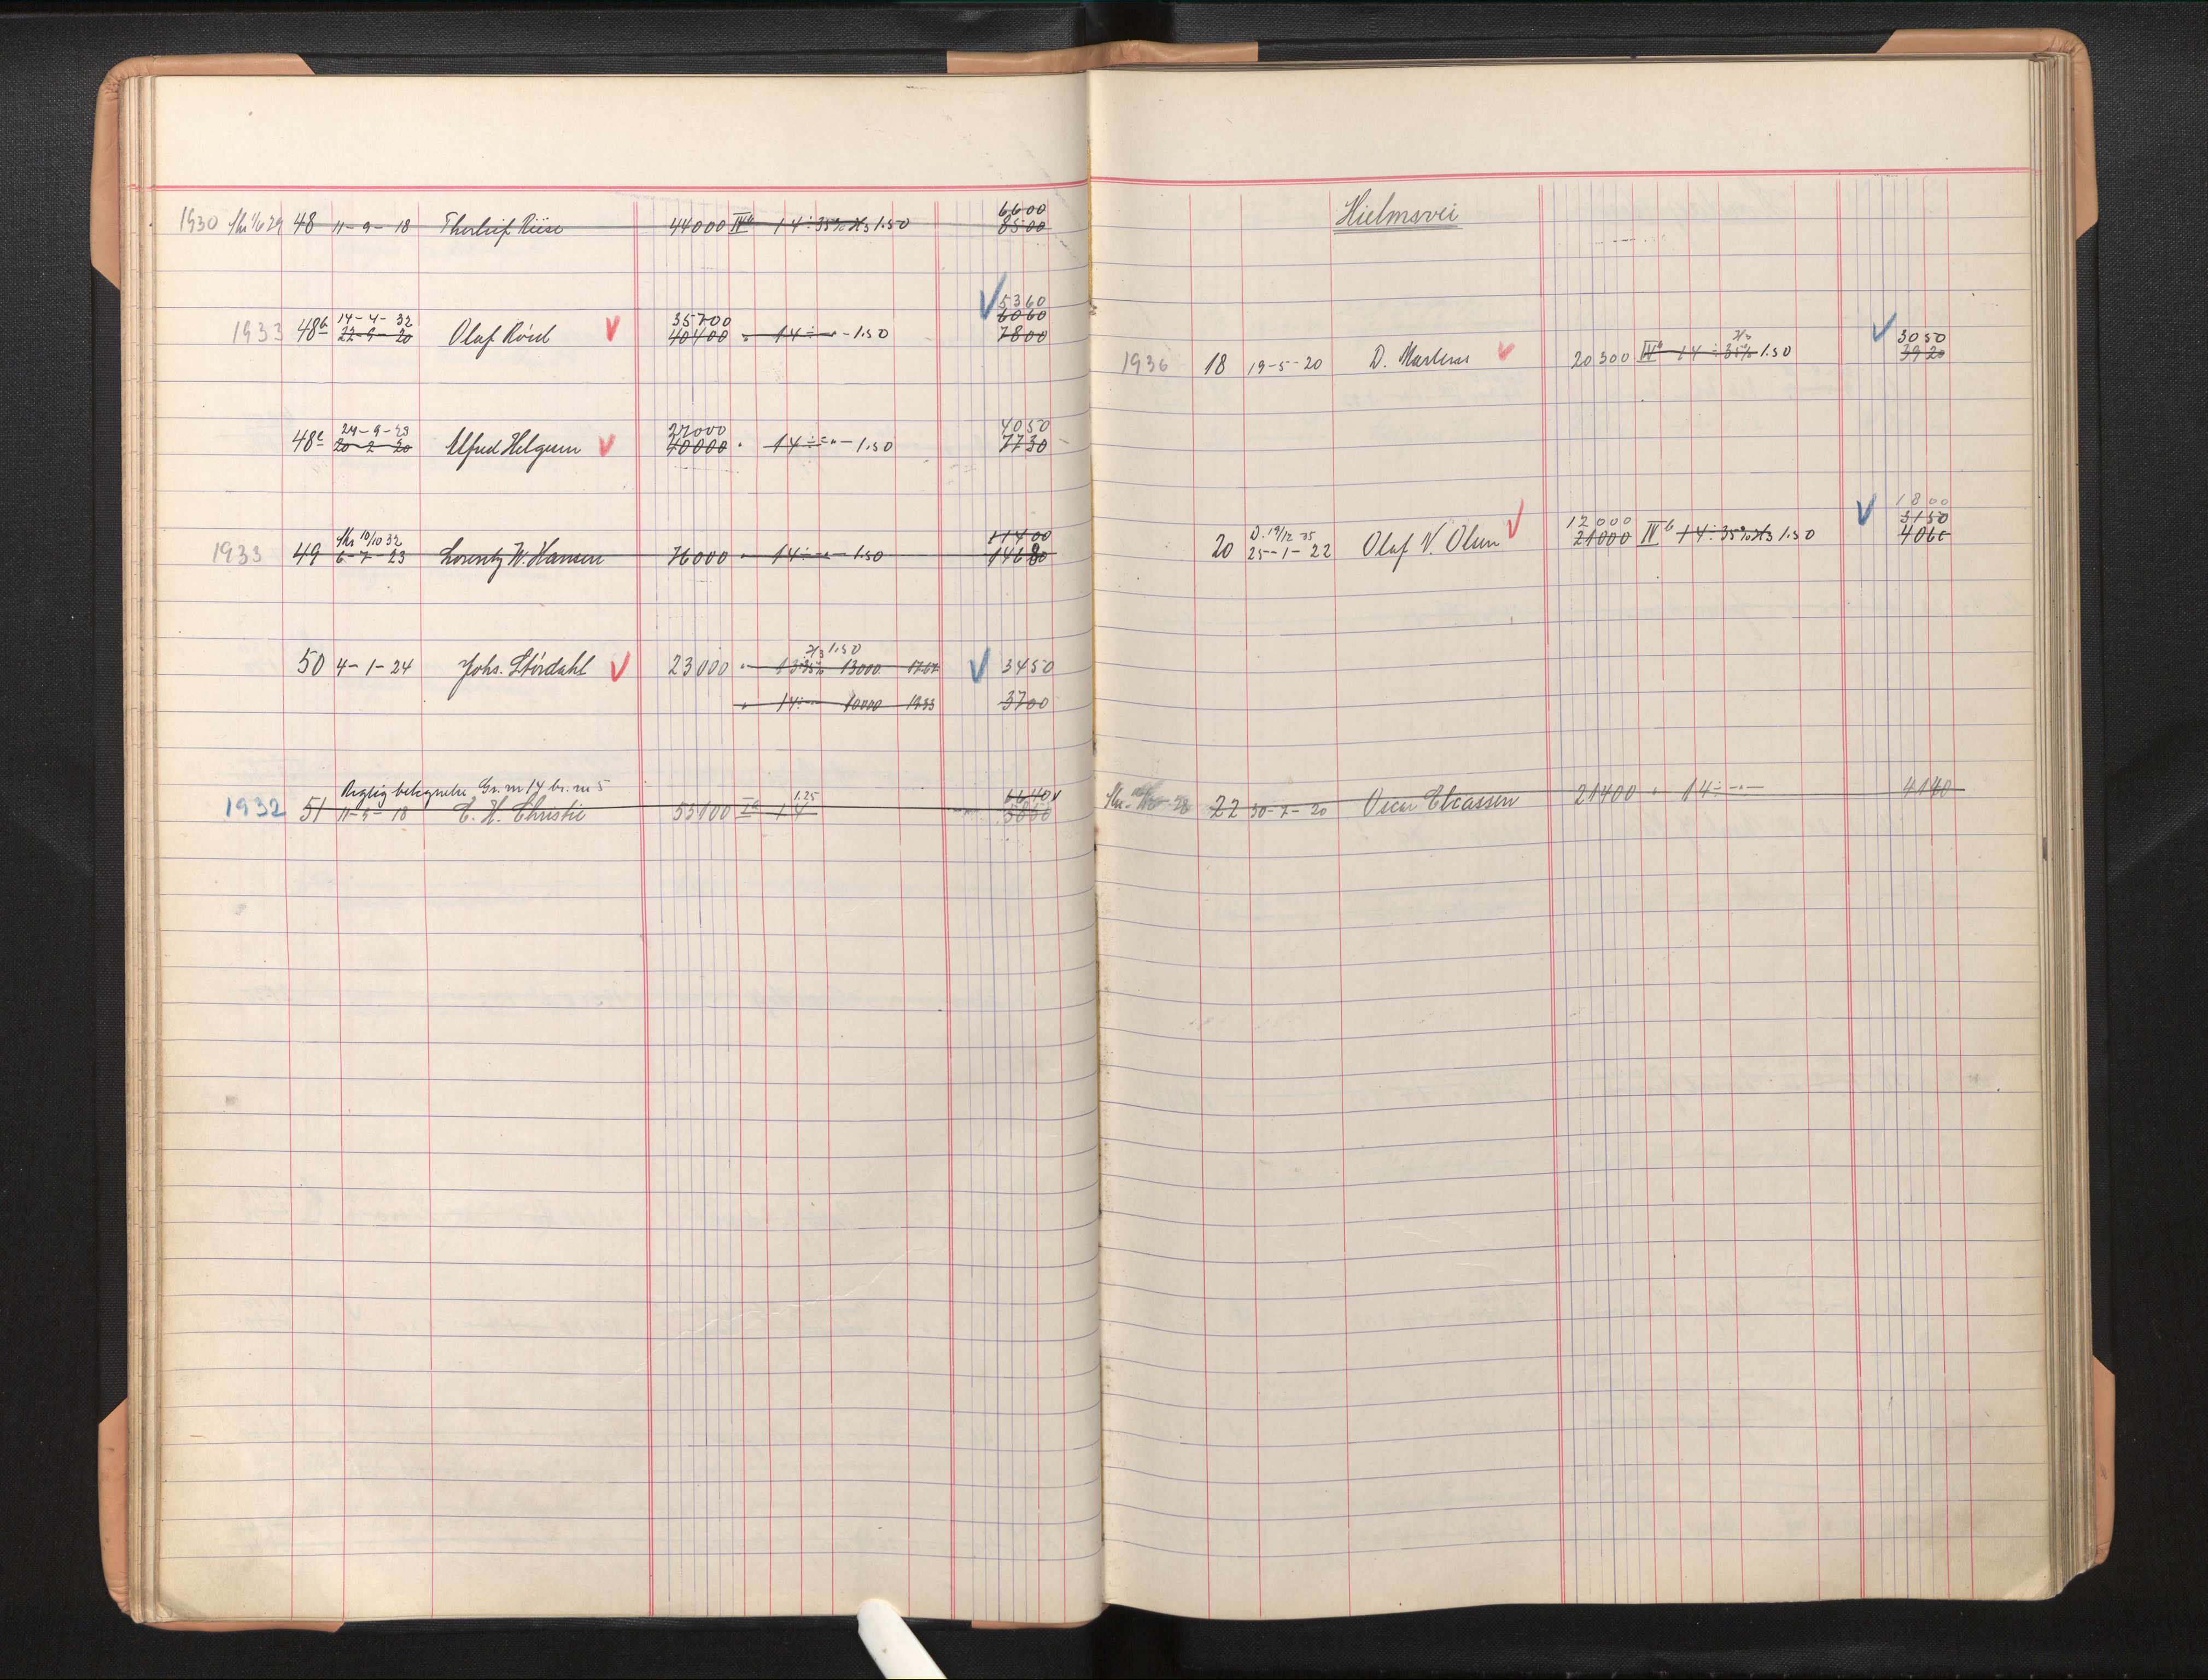 6600
1930 Skr 1/6 29 48 11-9-18 Thorleif Riise 44000 IVa 14÷35% 2/3 1.50 8500
5360
14-4-32 35700 6060
1933 48b 22-9-20 Olaf Röed 40400 " 14÷-"- 1.50 7800
24-9-23 27000 4050
48c 20-2-20 Alfred Helgesen 40000 " 14÷-"- 1.50 7730
Skr 10/10 32 11400
1933 49 6-7-23 Lorentz W. Hansen 76000 " 14÷-"- 1.50 14680
2/3 1.50
50 4-1-24 Johs. Stördahl 23000 " 13÷35% 13000 1767 3450
" 14÷-"- 10000 1933 3700
Gr. nr 14 br. nr 5 1.25 6640
1932 51 11-9-18 C. H. Christie 53100 Ia 14
Hielmsvei
2/3 3050
1936 18 19-5-20 D. Martens 20300 IVa 14÷35% 1.50 3920
1800
D. 19/12 35 12000 3150
20 25-1-22 Olaf V. Olsen 21000 IVb 14÷35% 2/3 1.50 4060
22 30-7-20 Oscar Eliassen 21400 " 14÷-"- 4140